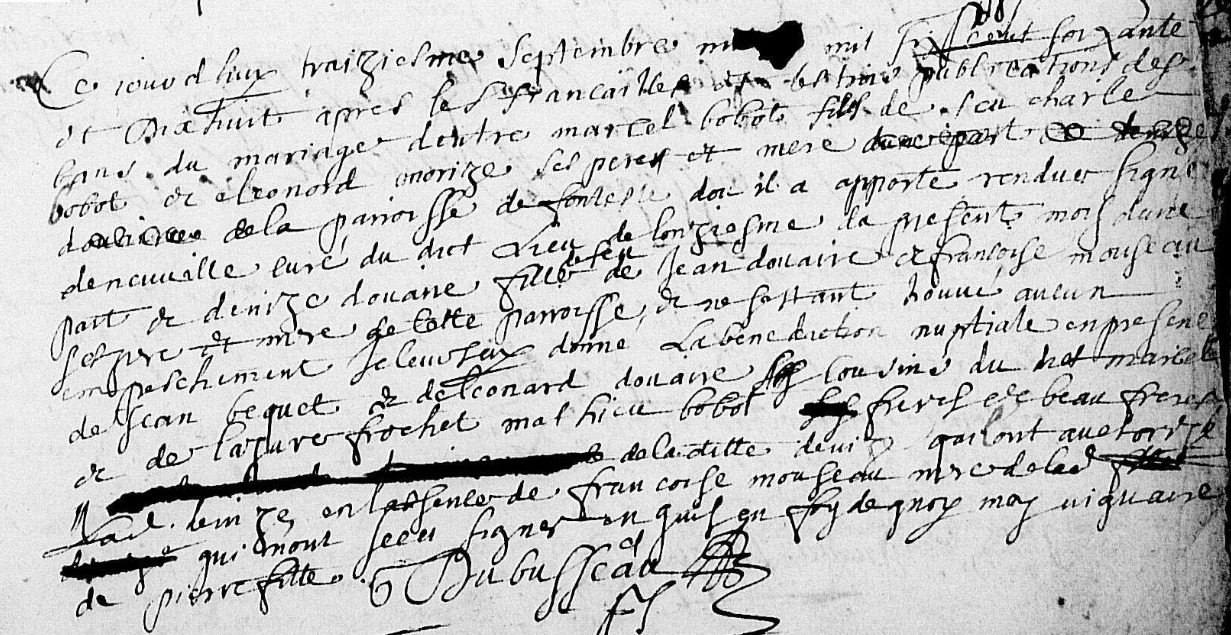 Ce jourd huy traiziesme septembre mil six cent soixante
et Dixhuit apres les francailles et les trois publications des
bans du mariage dentre marcel bobot fils de feu charle
bobot et eleonord morize ses peres et mere
de la parroisse de dou il a apporte rendues signe
deneuville cure du dict Lieu de lonziesme du present mois dune
part et denize douaire fille de feu Jean douaire et francoise mouseau
ses pere et mere de cette parroisse, et ne sestant trouve aucun
empeschement Je leurs donne La benediction nuptiale en presence
de Jean bequet et de leonard douaire cousins du marcel
et de lazare frochet mathieu bobot freres et beau freres
de la ditte denize
Lad. denize en labsence de francoise mouseau mere de lad
qui mont signer en foy de quoy moy viquaire
de pierrefitte. Dubusseau